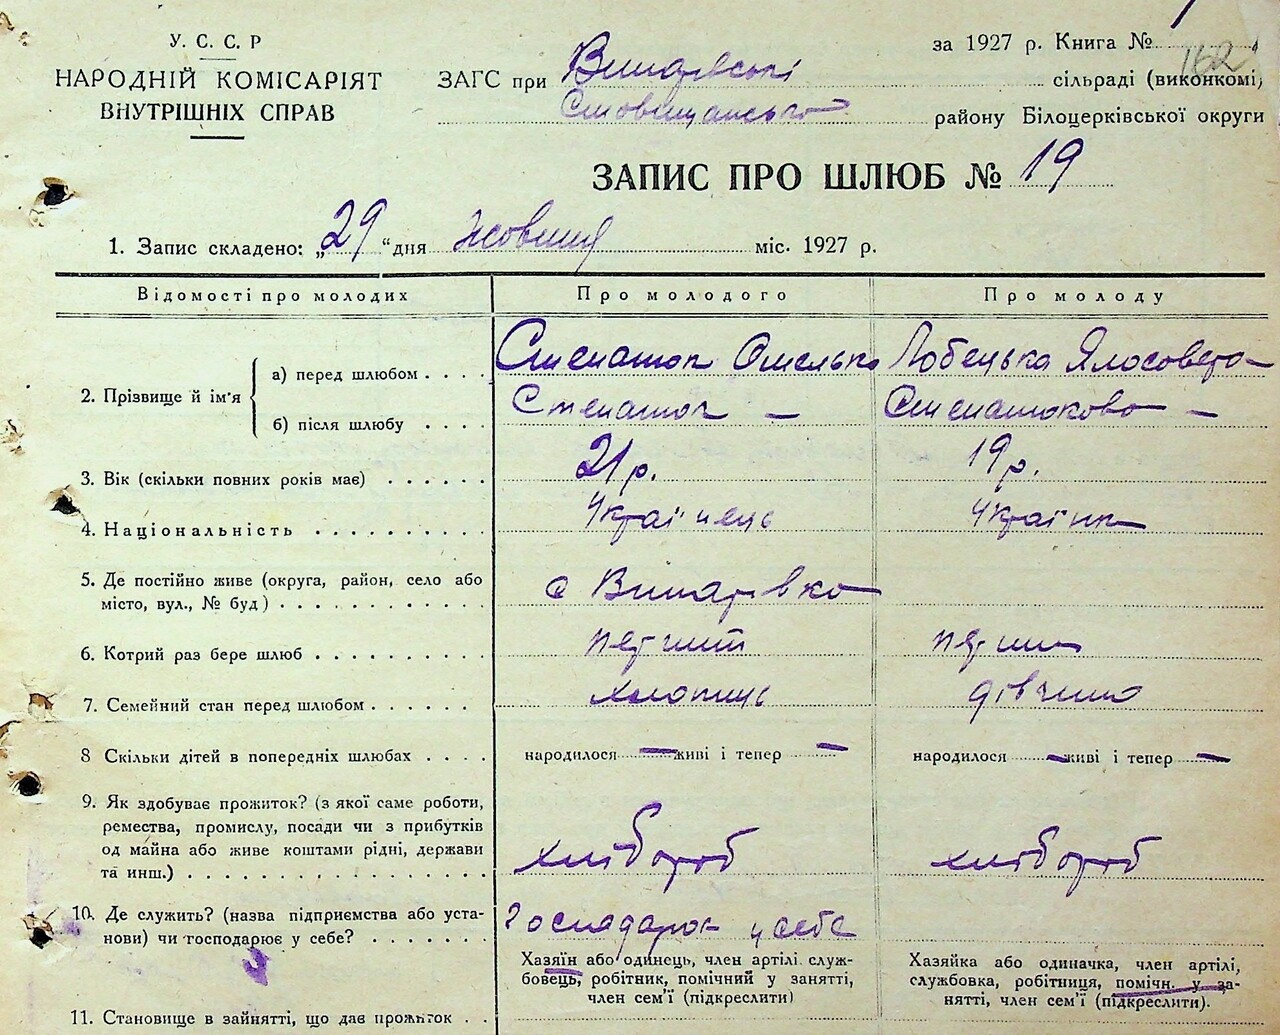 У. С. С. Р
НАРОДНІЙ КОМІСАРІЯТ
ВНУТРІШНІХ СПРАВ
за 1927 р. Книга № 162
ЗАГС при сільраді (виконкомі)
району Білоцерківської округи
ЗАПИС ПРО ШЛЮБ № 19
1. Запис складено: „29 “ дня Жовтня міс. 1927 р.
Відомості про молодих Про молодого Про молоду
2. Прізвище й ім'я
а) перед шлюбом Степатюк Омелько Лобецька
б) після шлюбу Степатюк — Степатюкова —
3. Вік (скільки повних років має) 21 р. 19 р.
4. Національність Українець Українк
5. Де постійно живе (округа, район, село або
місто, вул., № буд) с
6. Котрий раз бере шлюб перший перш
7. Семейний стан перед шлюбом хлопець дівчина
8 Скільки дітей в попередніх шлюбах народилося — живі і тепер — народилося — живі і тепер —
9. Як здобуває прожиток? (з якої саме роботи,
ремества, промислу, посади чи з прибутків
од майна або живе коштами рідні, держави
та инш.) хлібороб хлібороб
10. Де служить? (назва підприємства або уста-
нови) чи господарює у себе? Господарює у себе
Хазяїн або одинець, член артілі службовець, робітник, помічний у занятті, член сем'ї (підкреслити)
Хазяйка або одиначка, член артілі, службовка, робітниця, помічн. у занятті, член сем'ї (підкреслити).
11. Становище в зайнятті, що дає прожиток